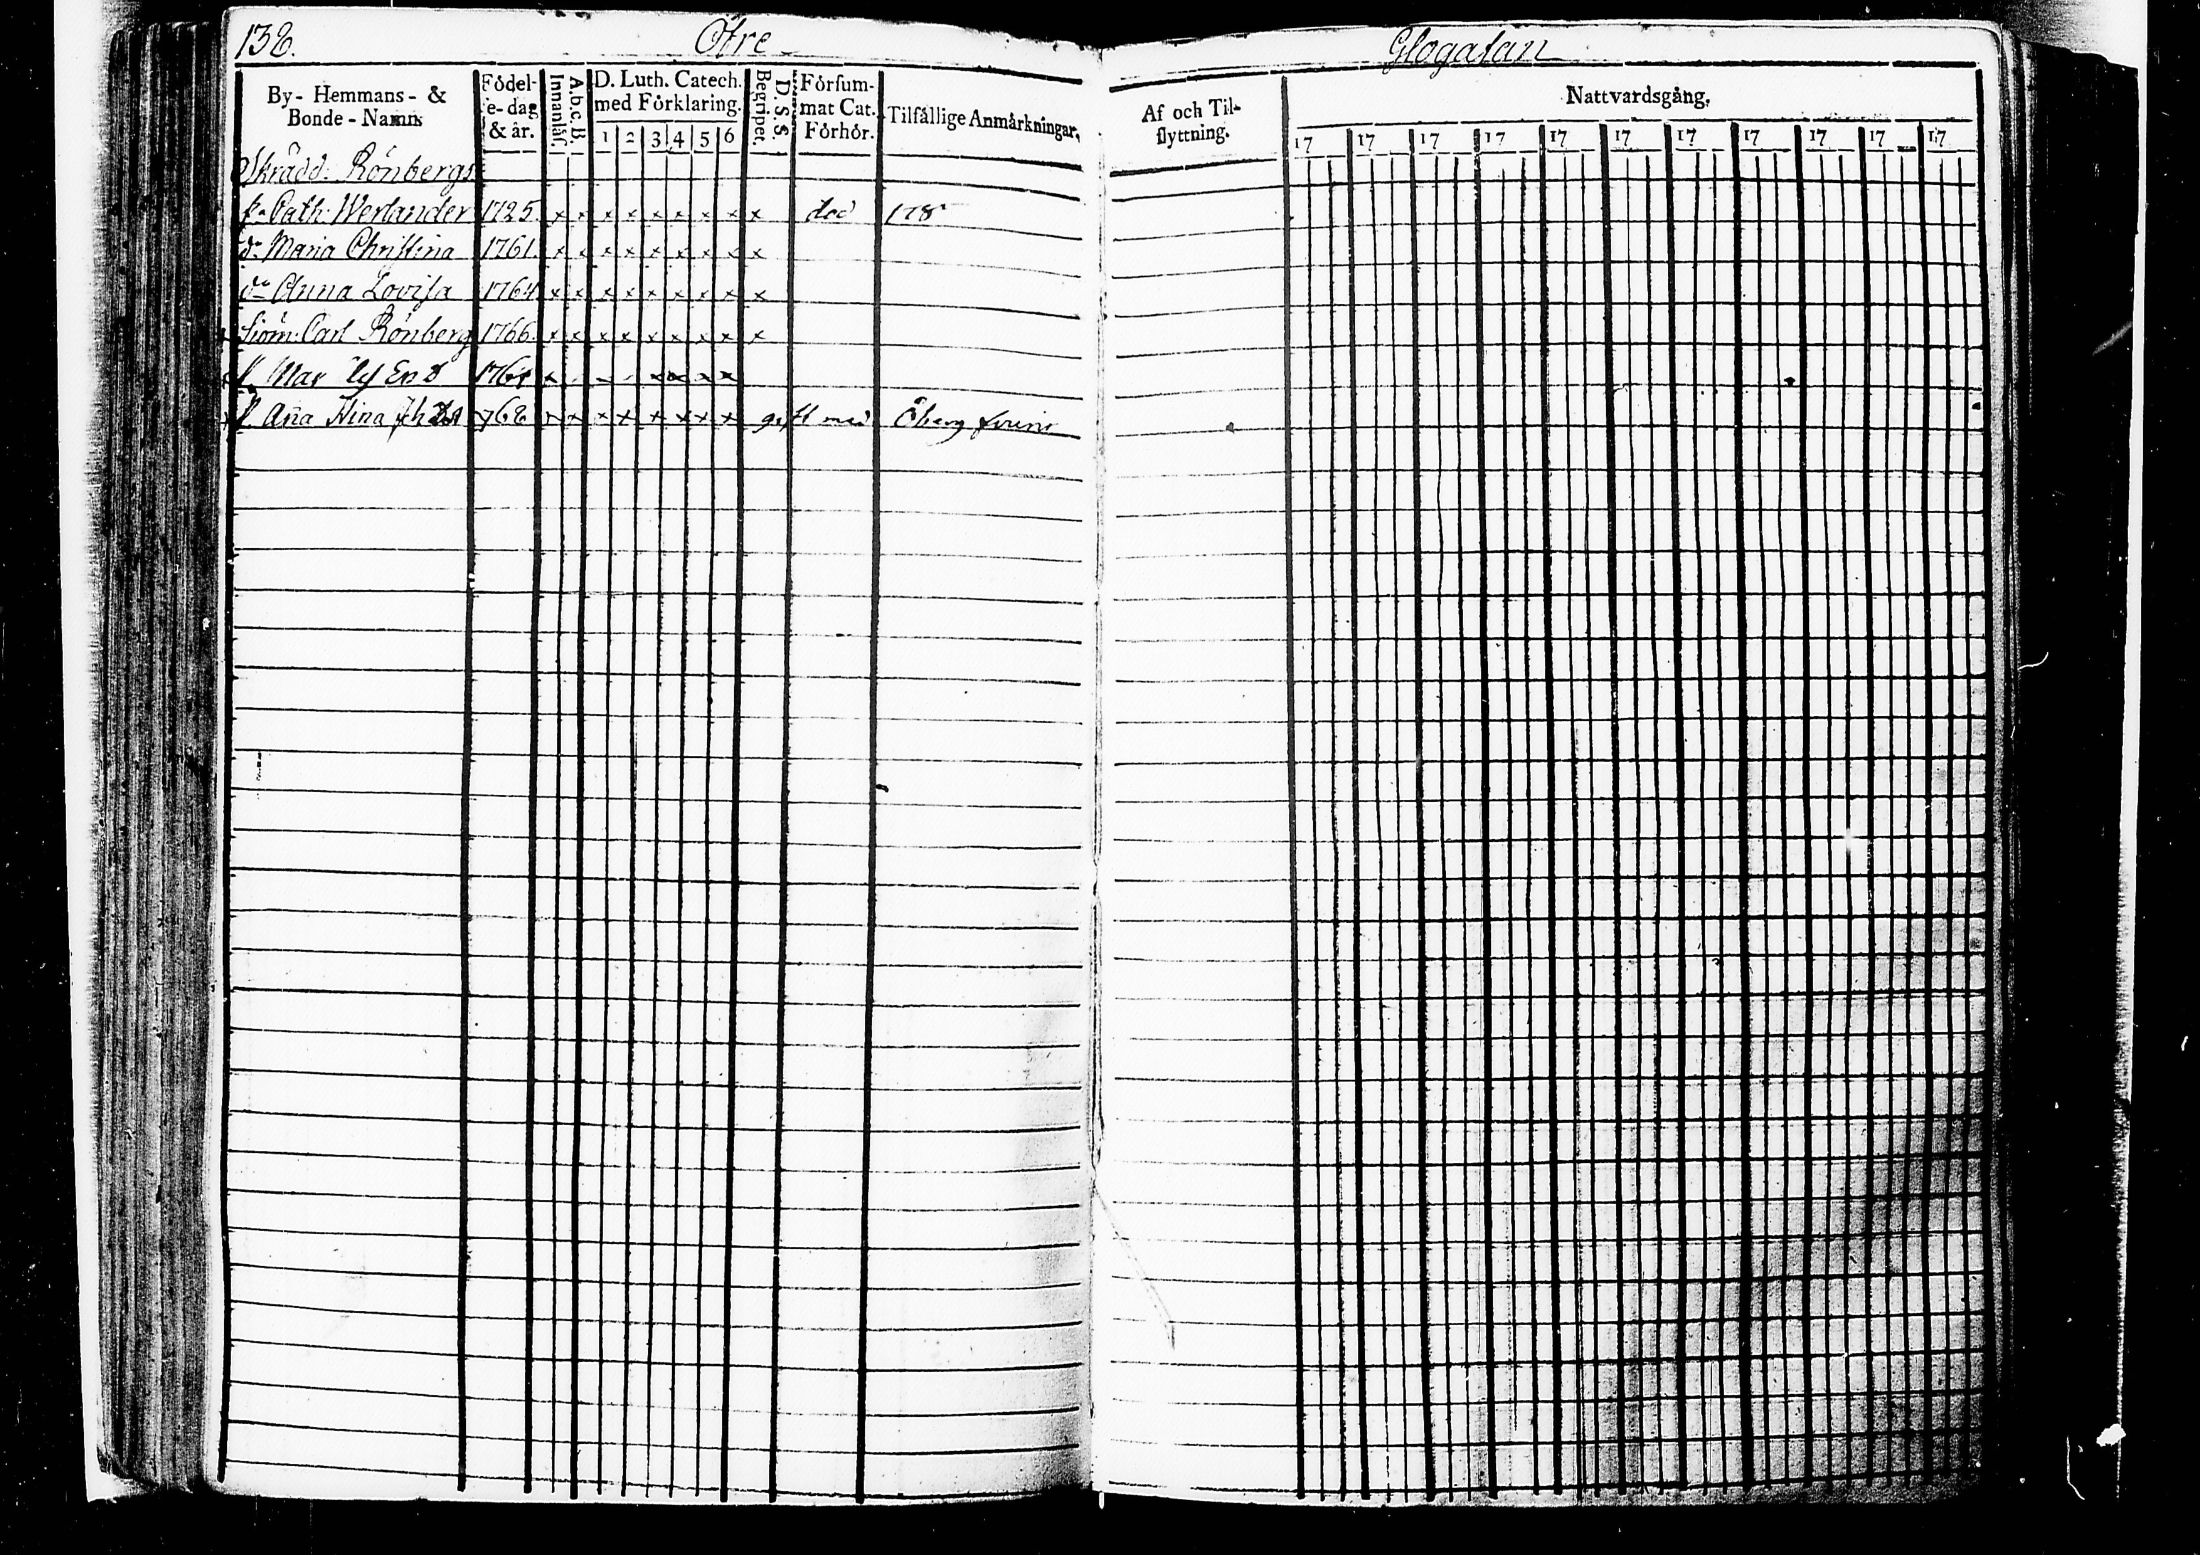 138. Öfre
Glogatan
By- Hemmans- & Bonde-Namn
Födel-e-dag & år.
Innanläs. A.b.c.B.
D. Luth. Catech. med Förklaring.
1 2 3 4 5 6
Begripet. D.S.S.
Försum-mat Cat. Förhör.
Tilfällige Anmärkningar.
Af och Til-flyttning.
Nattvardsgång.
17 17 17 17 17 17 17 17 17 17 17
Skrädd: Rönbergs
Cath: Werlander 1725. x x x x x x x x x död 178
dr Maria Christina 1761. x x x x x x x x x
dr Anna Lovisa 1764 x x x x x x x x x
Siöm: Carl Rönberg 1766. x x x x x x x x x
Mar
Ana Stina 768 x x x x x x x x gift med Öberg